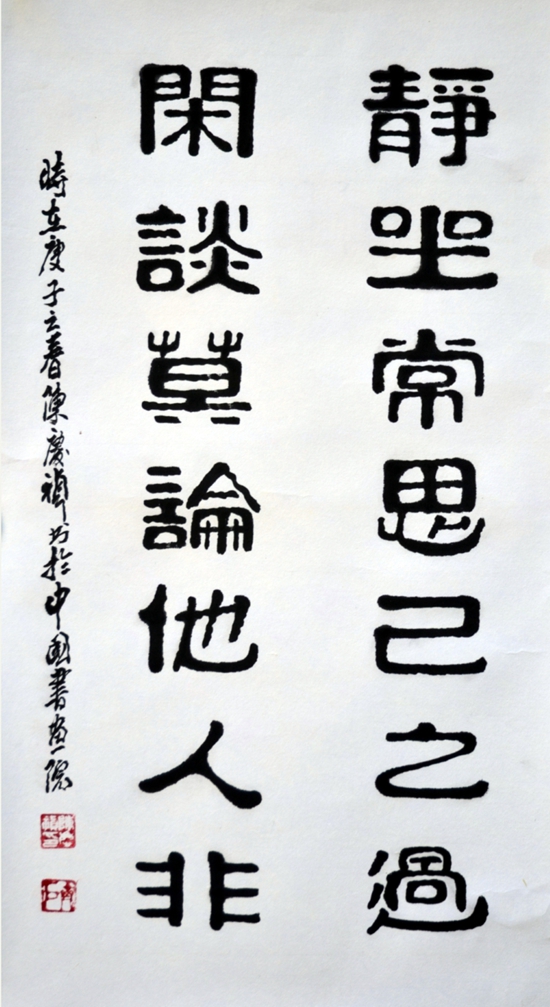 靜坐常思己之過
閑談莫論他人非
時在庚子之春陳慶禎書於中國書畫院